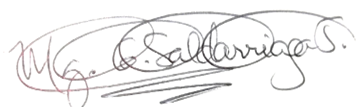 Mg. G. Saldarriaga S.